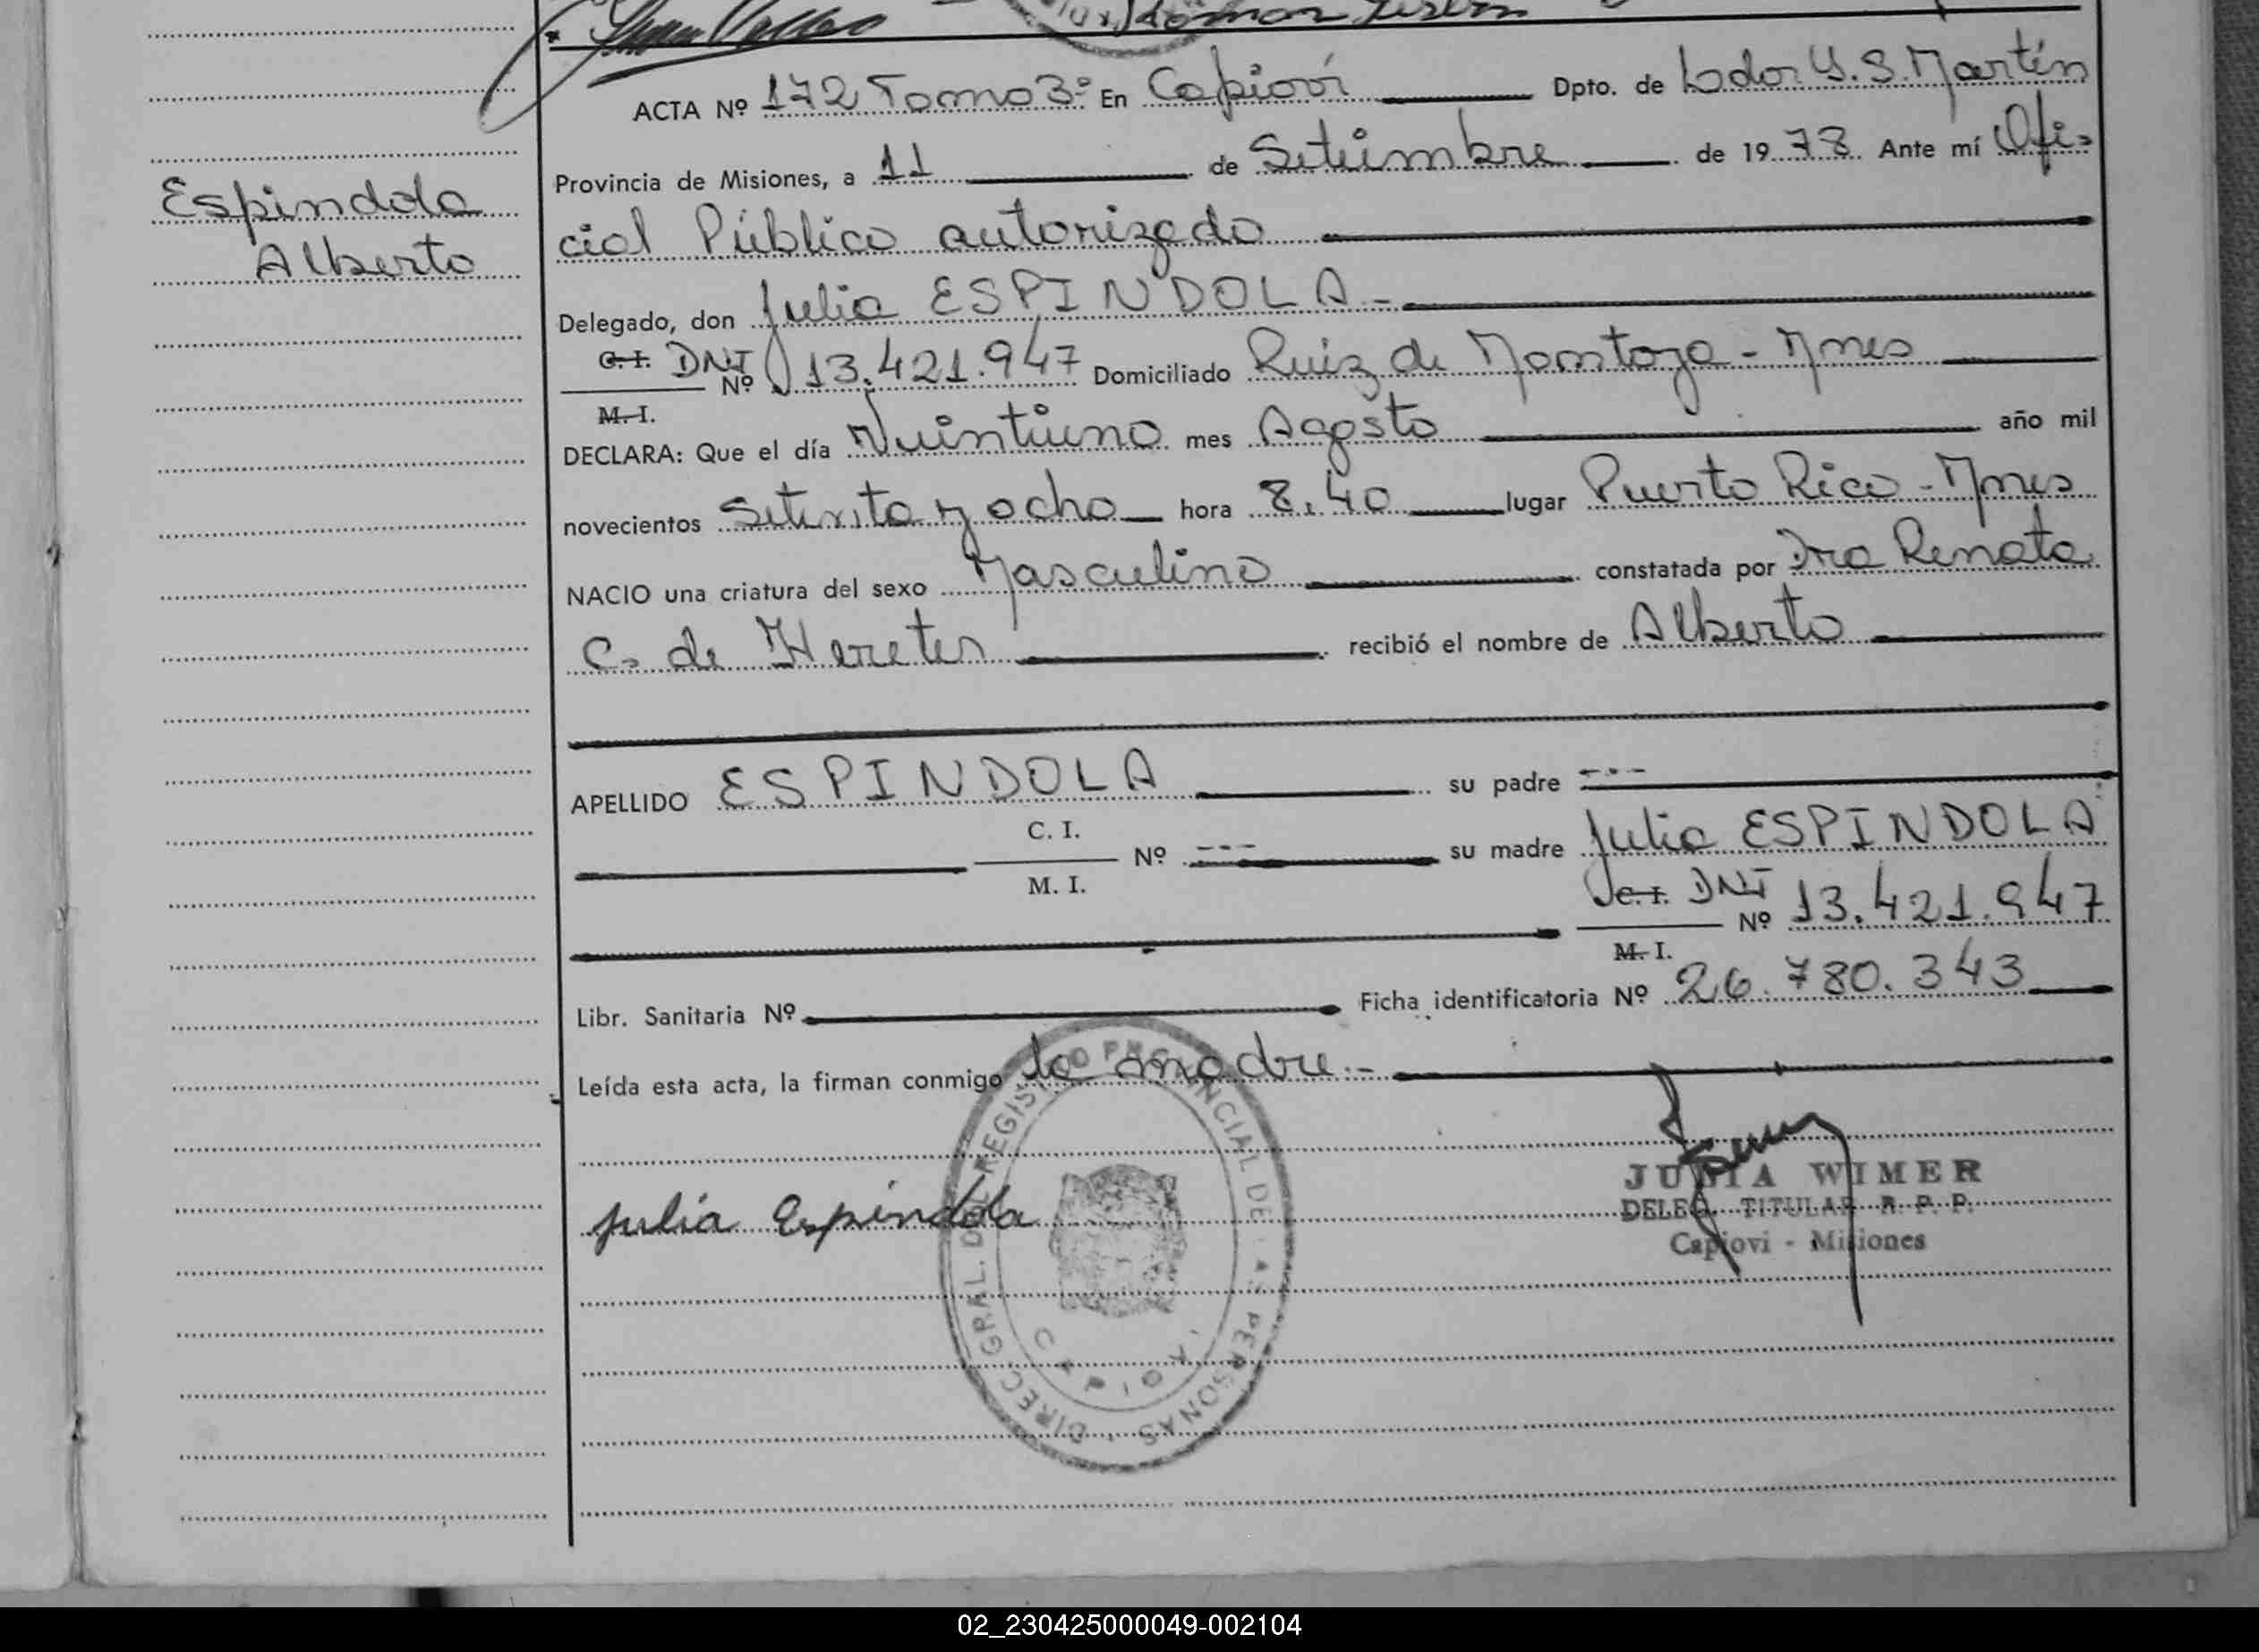 ACTA Nº 172 Tomo 3º En Capioví Dpto. de Ldor G. S. Martín
Provincia de Misiones, a 11 de Setiembre de 1978 Ante mí Ofi-
Espindola
Alberto
cial Público autorizado
Delegado, don Julia ESPINDOLA.-
C.I. DNI Nº 13.421.947 Domiciliado Ruiz de Montoya - Mnes
M.I.
DECLARA: Que el día Veintiuno mes Agosto año mil
novecientos Setenta y ocho hora 8,40 lugar Puerto Rico - Mnes
NACIO una criatura del sexo Masculino constatada por Dra Renata
C. de recibió el nombre de Alberto
APELLIDO ESPINDOLA su padre ---
C. I.
Nº --- su madre Julia ESPINDOLA
M. I.
C.I. DNI Nº 13.421.947
M.I.
Libr. Sanitaria Nº Ficha identificatoria Nº 26.780.343
Leída esta acta, la firman conmigo la madre.-
julia Espindola
JULIA WIMER
DELEG. TITULAR R. P. P.
Capiovi - Misiones
DIREC. GRAL. DEL REGISTRO PROVINCIAL DE LAS PERSONAS
CAPIOVI
02_230425000049-002104